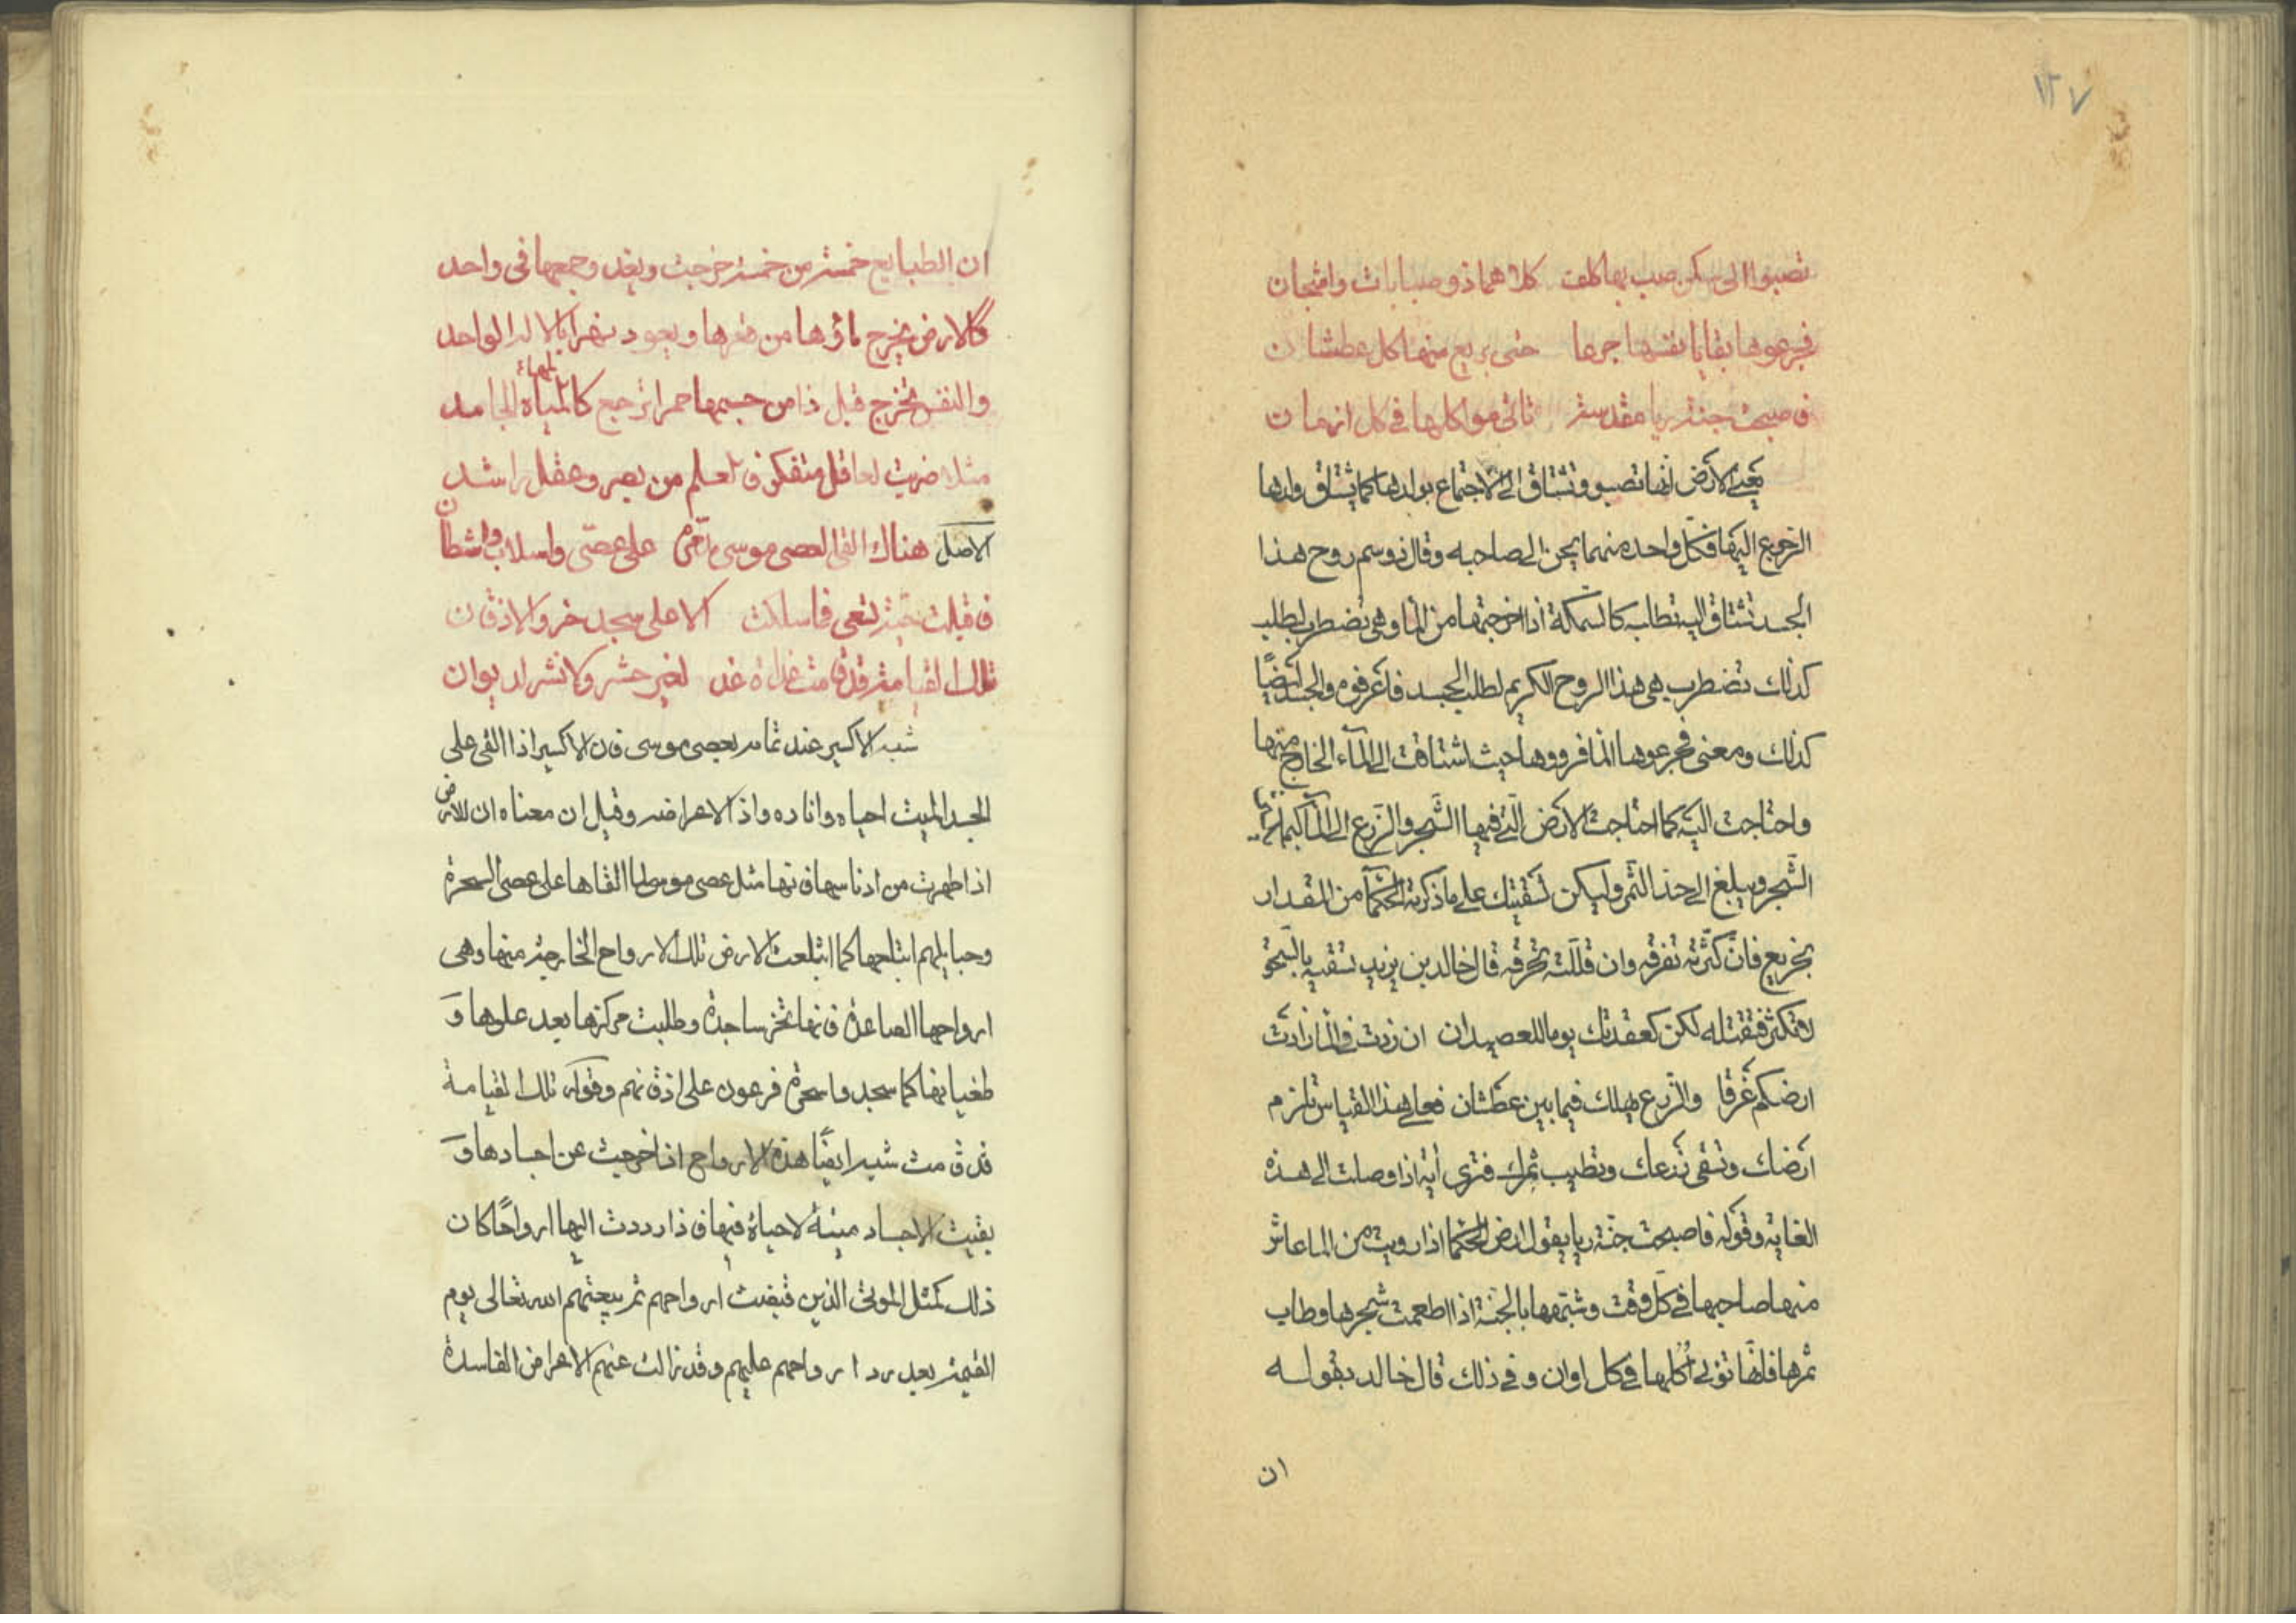 ١٢٧
تصبوا الى سكن صب بها كلف كلاهما ذو صبابات واشجان
فجرعوها بقايا نفسها جرعا حتى يريع منها كل عطشان
فاصبحت جنة ريا مقدسة تاتي مواكلها في كل ازمان
يعني الارض انها تصبو وتشتاق الى الاجتماع بولدها كما يشتاق ولدها
الرجوع اليها فكل واحد منهما يحن الى صاحبه وقال زوسم روح هذا
الجسد تشتاق اليه تطلبه كالسمكة اذا اخرجتها من الما وهي تضطرب لطلبه
كذلك تضطرب هي هذا الروح الكريم لطلب الجسد فاعرفوه والجسد ايضًا
كذلك ومعنى فجرعوها انما فرووها حيث اشتاقت الى الماء الخارج منها
واحتاجت اليه كما احتاجت الارض التي فيها الشجر والزرع الى الما كيما
الشجر ويبلغ الى حد الثمر وليكن تسقيتك على ما ذكرته الحكما من المقدار
بجريع فان كثرته تغرقه وان قللته تحرقه قال خالد بن يزيد تسقيه بالنحو
لا تكثر فتقتله لكن كعقدتك يوما للعصيدان ان زدت في الما زادت
ارضكم غرقا والزرع يهلك فيما بين عطشان فعلى هذا القياس تلزم
ارضك وتسقي زرعك وتطيب ثمرك فترى أية اذا وصلت الى هذه
الغاية وقوله فاصبحت جنة ريا يقول ارض الحكما اذا رويت من الما عاش
منها صاحبها في كل وقت وشبهها بالجنة اذا اطعمت شجرها وطاب
ثمرها فانها تؤتي أكلها في كل اوان وفي ذلك قال خالد بقوله
ان
ان الطبايع خمسة من خمسة خرجت وبعد وجمعها في واحد
كالارض يخرج ماؤها من قعرها ويعود نهرا بالاله الواحد
والنفس تخرج قبل ذا من جسمها حمرا ترجع كالمياه الجامد
بلهاء
مثلا ضربت لعاقل متفكر فاعلم من بصر وعقل راشد
الاصل هناك القى العصى موسى على عصّى واسلاب واشطان
فاقبلت حية تسعى فاسلكت الا على سجد خروا لاذقان
تلك القيامة قد قامت غداة غد لغير حشر ولا نشر لديوان
شبه الاكسير عند تمامه بعصى موسى فان الاكسير اذا القى على
الجسد الميت احياه واناره واذ الاعراضه وقيل ان معناه ان للارض
اذا طهرت من ادناسها فانها مثل عصى موسى لما القاها على عصى السحرة
وحبايلهم ابتلعها كما ابتلعت الارض تلك الارواح الخارجة منها وهي
ارواحها الصاعدة فانها تخر ساجدة وطلبت مركزها بعد علوها و
طغيانها كما سجدوا سحرة فرعون على اذقانهم وقوله تلك القيامة
قد قامت شبه ايضًا هذه الارواح اذا خرجت عن اجسادها و
بقيت الاجساد ميتة لا حياة فيها فاذا رددت اليها ارواحًا كان
ذلك كمثل الموتى الذين قبضت ارواحهم ثم يبعثهم الله تعالى يوم
القيمة بعد رد ارواحهم عليهم وقد زالت عنهم الاعراض الفاسدة